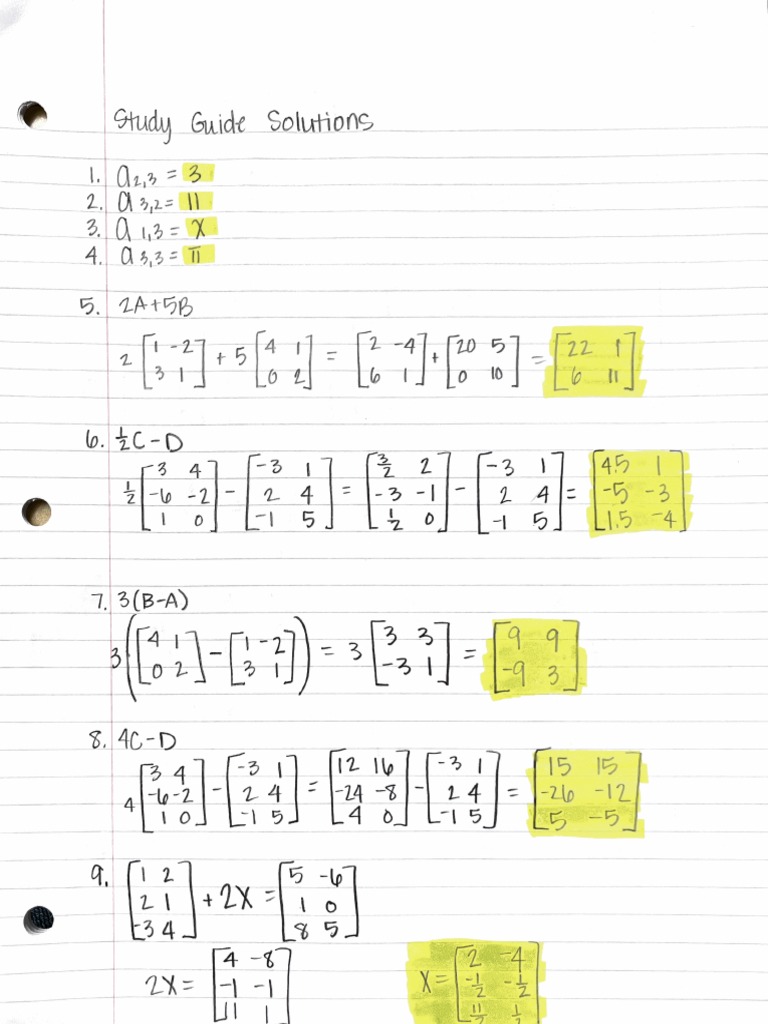 Study Guide Solutions
1. a2,3 = 3
2. a3,2 = 11
3. a1,3 = x
4. a3,3 = π
5. 2A+5B
2 [1 -2; 3 1] + 5 [4 1; 0 2] = [2 -4; 6 1] + [20 5; 0 10] = [22 1; 6 11]
6. 1/2 C - D
1/2 [3 4; -6 -2; 1 0] - [-3 1; 2 4; -1 5] = [3/2 2; -3 -1; 1/2 0] - [-3 1; 2 4; -1 5] = [4.5 1; -5 -3; 1.5 -4]
7. 3(B-A)
3([4 1; 0 2] - [1 -2; 3 1]) = 3 [3 3; -3 1] = [9 9; -9 3]
8. 4C-D
4 [3 4; -6 -2; 1 0] - [-3 1; 2 4; -1 5] = [12 16; -24 -8; 4 0] - [-3 1; 2 4; -1 5] = [15 15; -26 -12; 5 -5]
9. [1 2; 2 1; -3 4] + 2X = [5 -6; 1 0; 8 5]
2X = [4 -8; -1 -1; 11 1] X = [2 -4; -1/2 -1/2; 11/2 1/2]